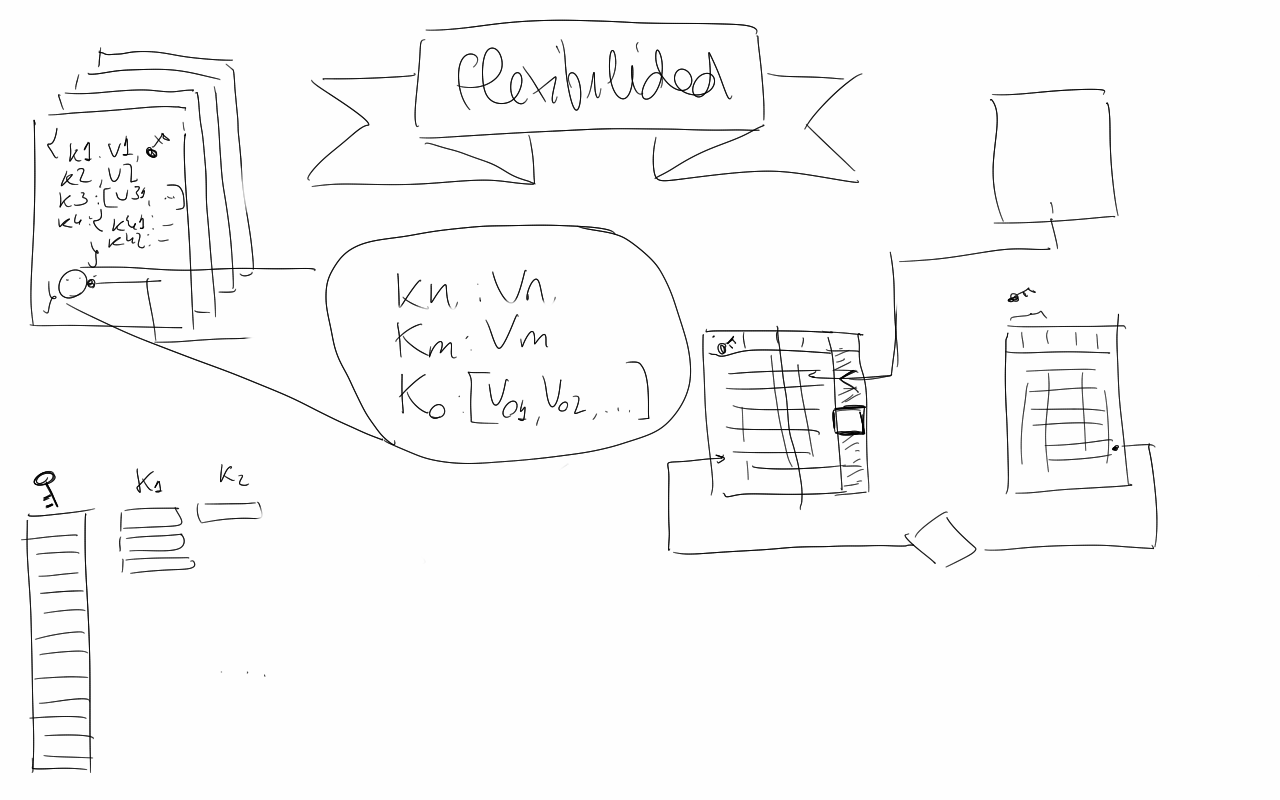 flexibilidad
{ k1: V1,
k2, V2
k3: [V31, ...]
k4: { k41: –
k42: –
}
}
Kn, : Vn,
Km : Vm
Ko : [Vo1, Vo2, ...]
K1 K2
...